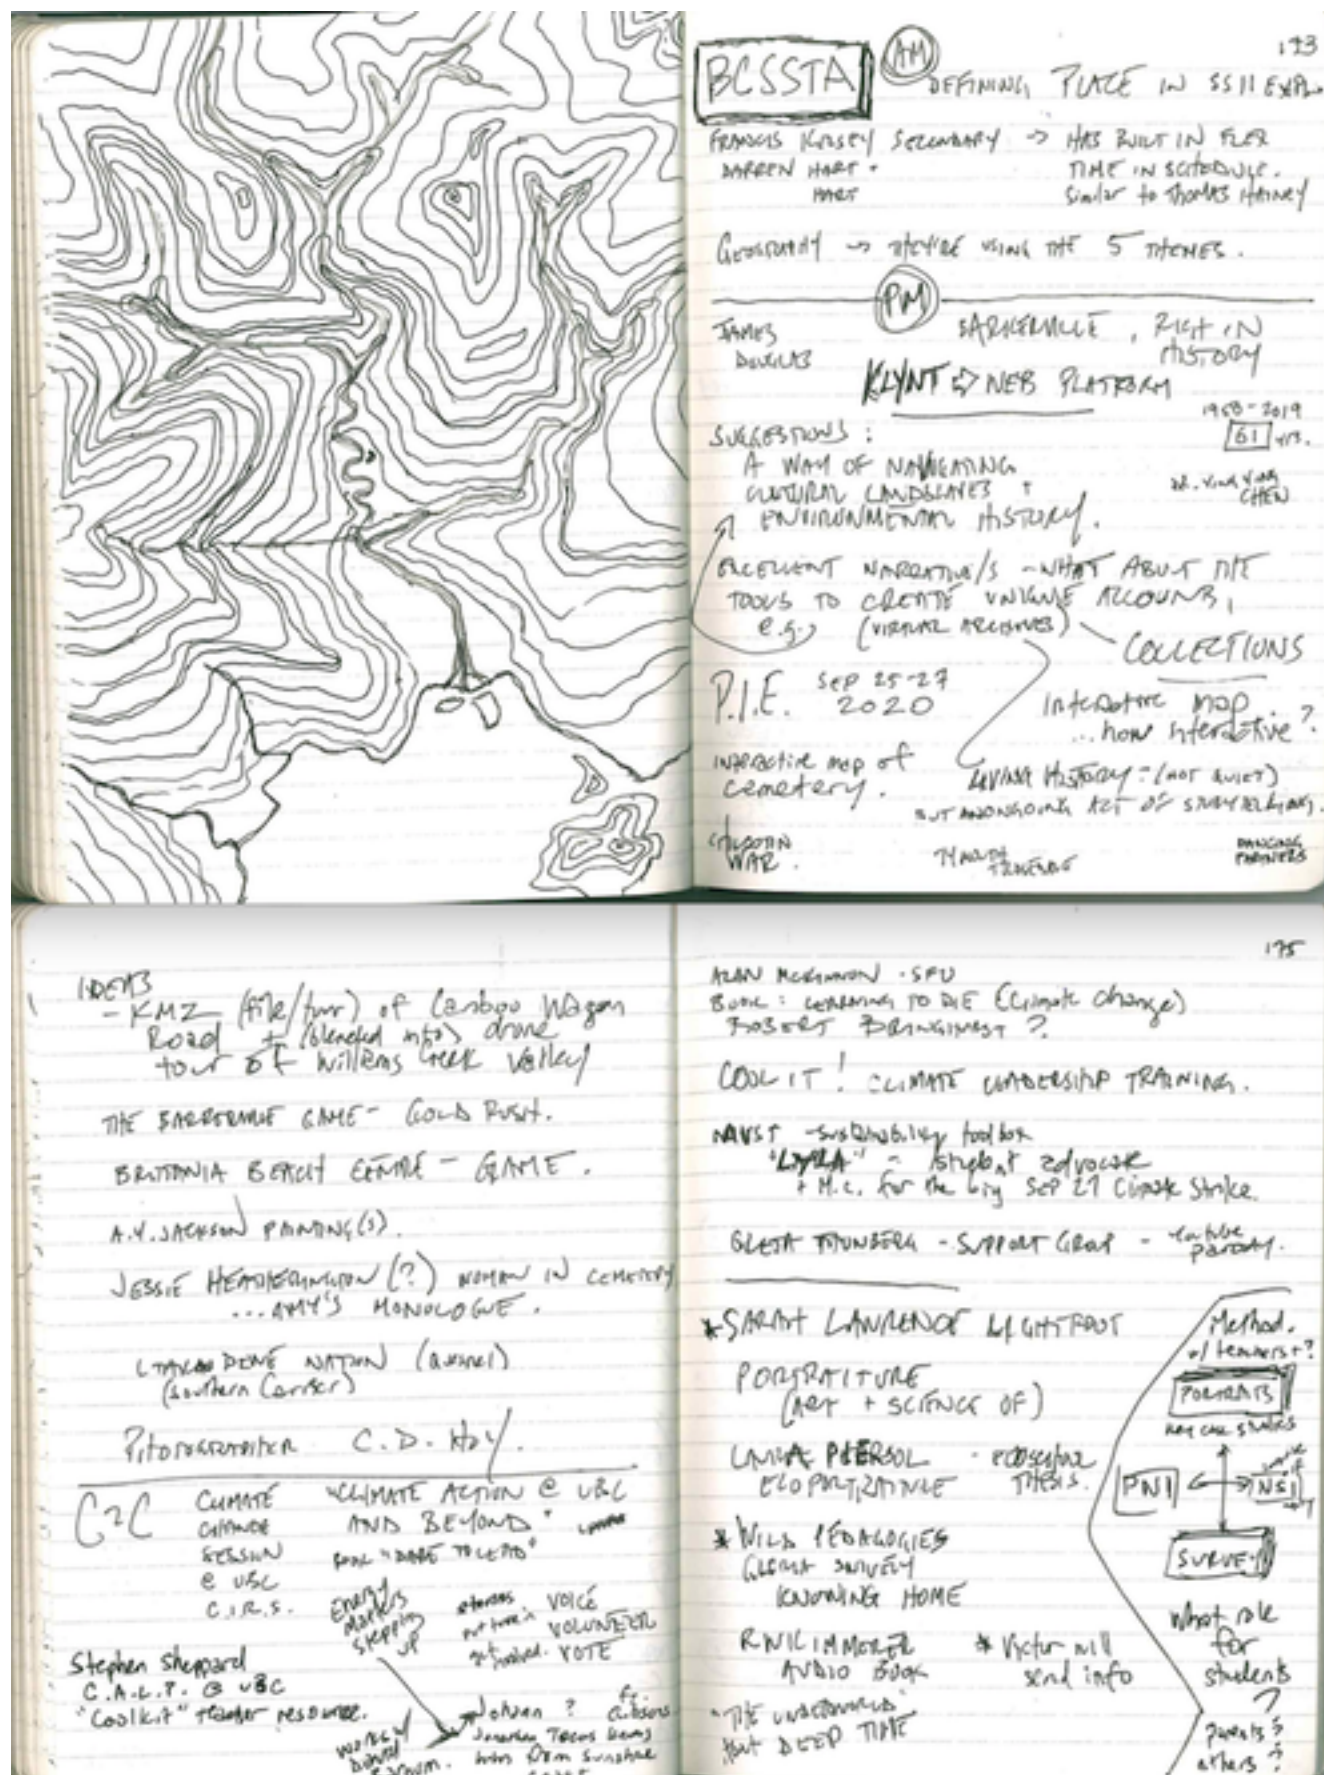 193
BCSSTA AM DEFINING PLACE IN SS11 EXPLO
FRANCIS KELSEY SECONDARY → HAS BUILT IN FLEX
DARREN HART + TIME IN SCHEDULE.
HART Similar to THOMAS HANEY
GEOGRAPHY → THEY'RE USING THE 5 THEMES.
PM
JAMES BARKERVILLE, RICH IN
DOUGLAS HISTORY
KLYNT ⇨ WEB PLATFORM
1958-2019
SUGGESTIONS : 61 yrs.
A WAY OF NAVIGATING
CULTURAL LANDSCAPES + DR. YING YING
ENVIRONMENTAL HISTORY. CHEN
EXCELLENT NARRATIVE/S - WHAT ABOUT THE
TOOLS TO CREATE UNIQUE ACCOUNTS,
e.g., (VIRTUAL ARCHIVES)
COLLECTIONS
P.I.E. Sep 25-27
2020
Interactive map
...how interactive?
INTERACTIVE map of
cemetery.
LIVING HISTORY - (NOT QUIET)
BUT AN ONGOING ACT OF STORYTELLING.
CHILCOTIN
WAR.
DANCING
PARTNERS
IDEAS
- KMZ (file/tour) of Cariboo Wagon
Road + (blended into) drone
tour of Williams Creek Valley
THE BARKERVILLE GAME - GOLD RUSH.
BRITTANIA BEACH CENTRE - GAME.
A.Y. JACKSON PAINTING(S).
JESSIE HEATHERINGTON (?) WOMAN IN CEMETERY
...AMY'S MONOLOGUE.
DENE NATION (QUESNEL)
(Southern Carrier)
PHOTOGRAPHER C.D. HOY.
C2C CLIMATE "CLIMATE ACTION @ UBC
CHANGE AND BEYOND"
SESSION BOOK "DARE TO LEAD"
@ UBC
C.I.R.S.
Energy
stepping
up
VOICE
VOLUNTEER
get involved. VOTE
Stephen Sheppard
C.A.L.P. @ UBC
"Coolkit" teacher resource.
Johan ?
from Sunshine
195
ALAN MCKINNON - SFU
BOOK: LEARNING TO DIE (Climate change)
ROBERT BRINGHURST ?
COOL IT! CLIMATE LEADERSHIP TRAINING.
- sustainability toolbox
- student advocate
+ M.C. for the big Sep 27 Climate Strike.
GRETA THUNBERG - SUPPORT GROUP - YouTube
parody.
* SARAH LAWRENCE LIGHTFOOT
PORTRAITURE
(ART + SCIENCE OF)
LAURA PIERSOL
ECOPORTRAITURE THESIS.
* WILD PEDAGOGIES
GLORIA SNIVELY
KNOWING HOME
AUDIO BOOK
* Victor will
send info
"THE UNDERWORLD"
DEEP TIME
Method.
w/ teachers+?
PORTRAITS
PNI ↔ NSI
SURVEY
What role
for
students
?
parents?
others?